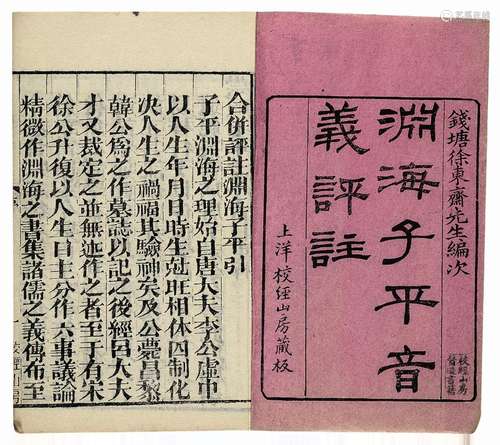 錢塘徐東齋先生編次
校經山房
督造書籍
淵海子平音
義評註
上洋校經山房藏板
合併評註淵海子平引
子平淵海之理始自唐大夫李公虛中
以人生年月日時生剋旺相休囚制化
決人生之禍福其驗神矣及公薨昌黎
韓公爲之作墓誌以記之後經呂大夫
才又裁定之並無述作之者至于有宋
徐公升復以人生日主分作六事議論
精微作淵海之書集諸儒之義傳布至